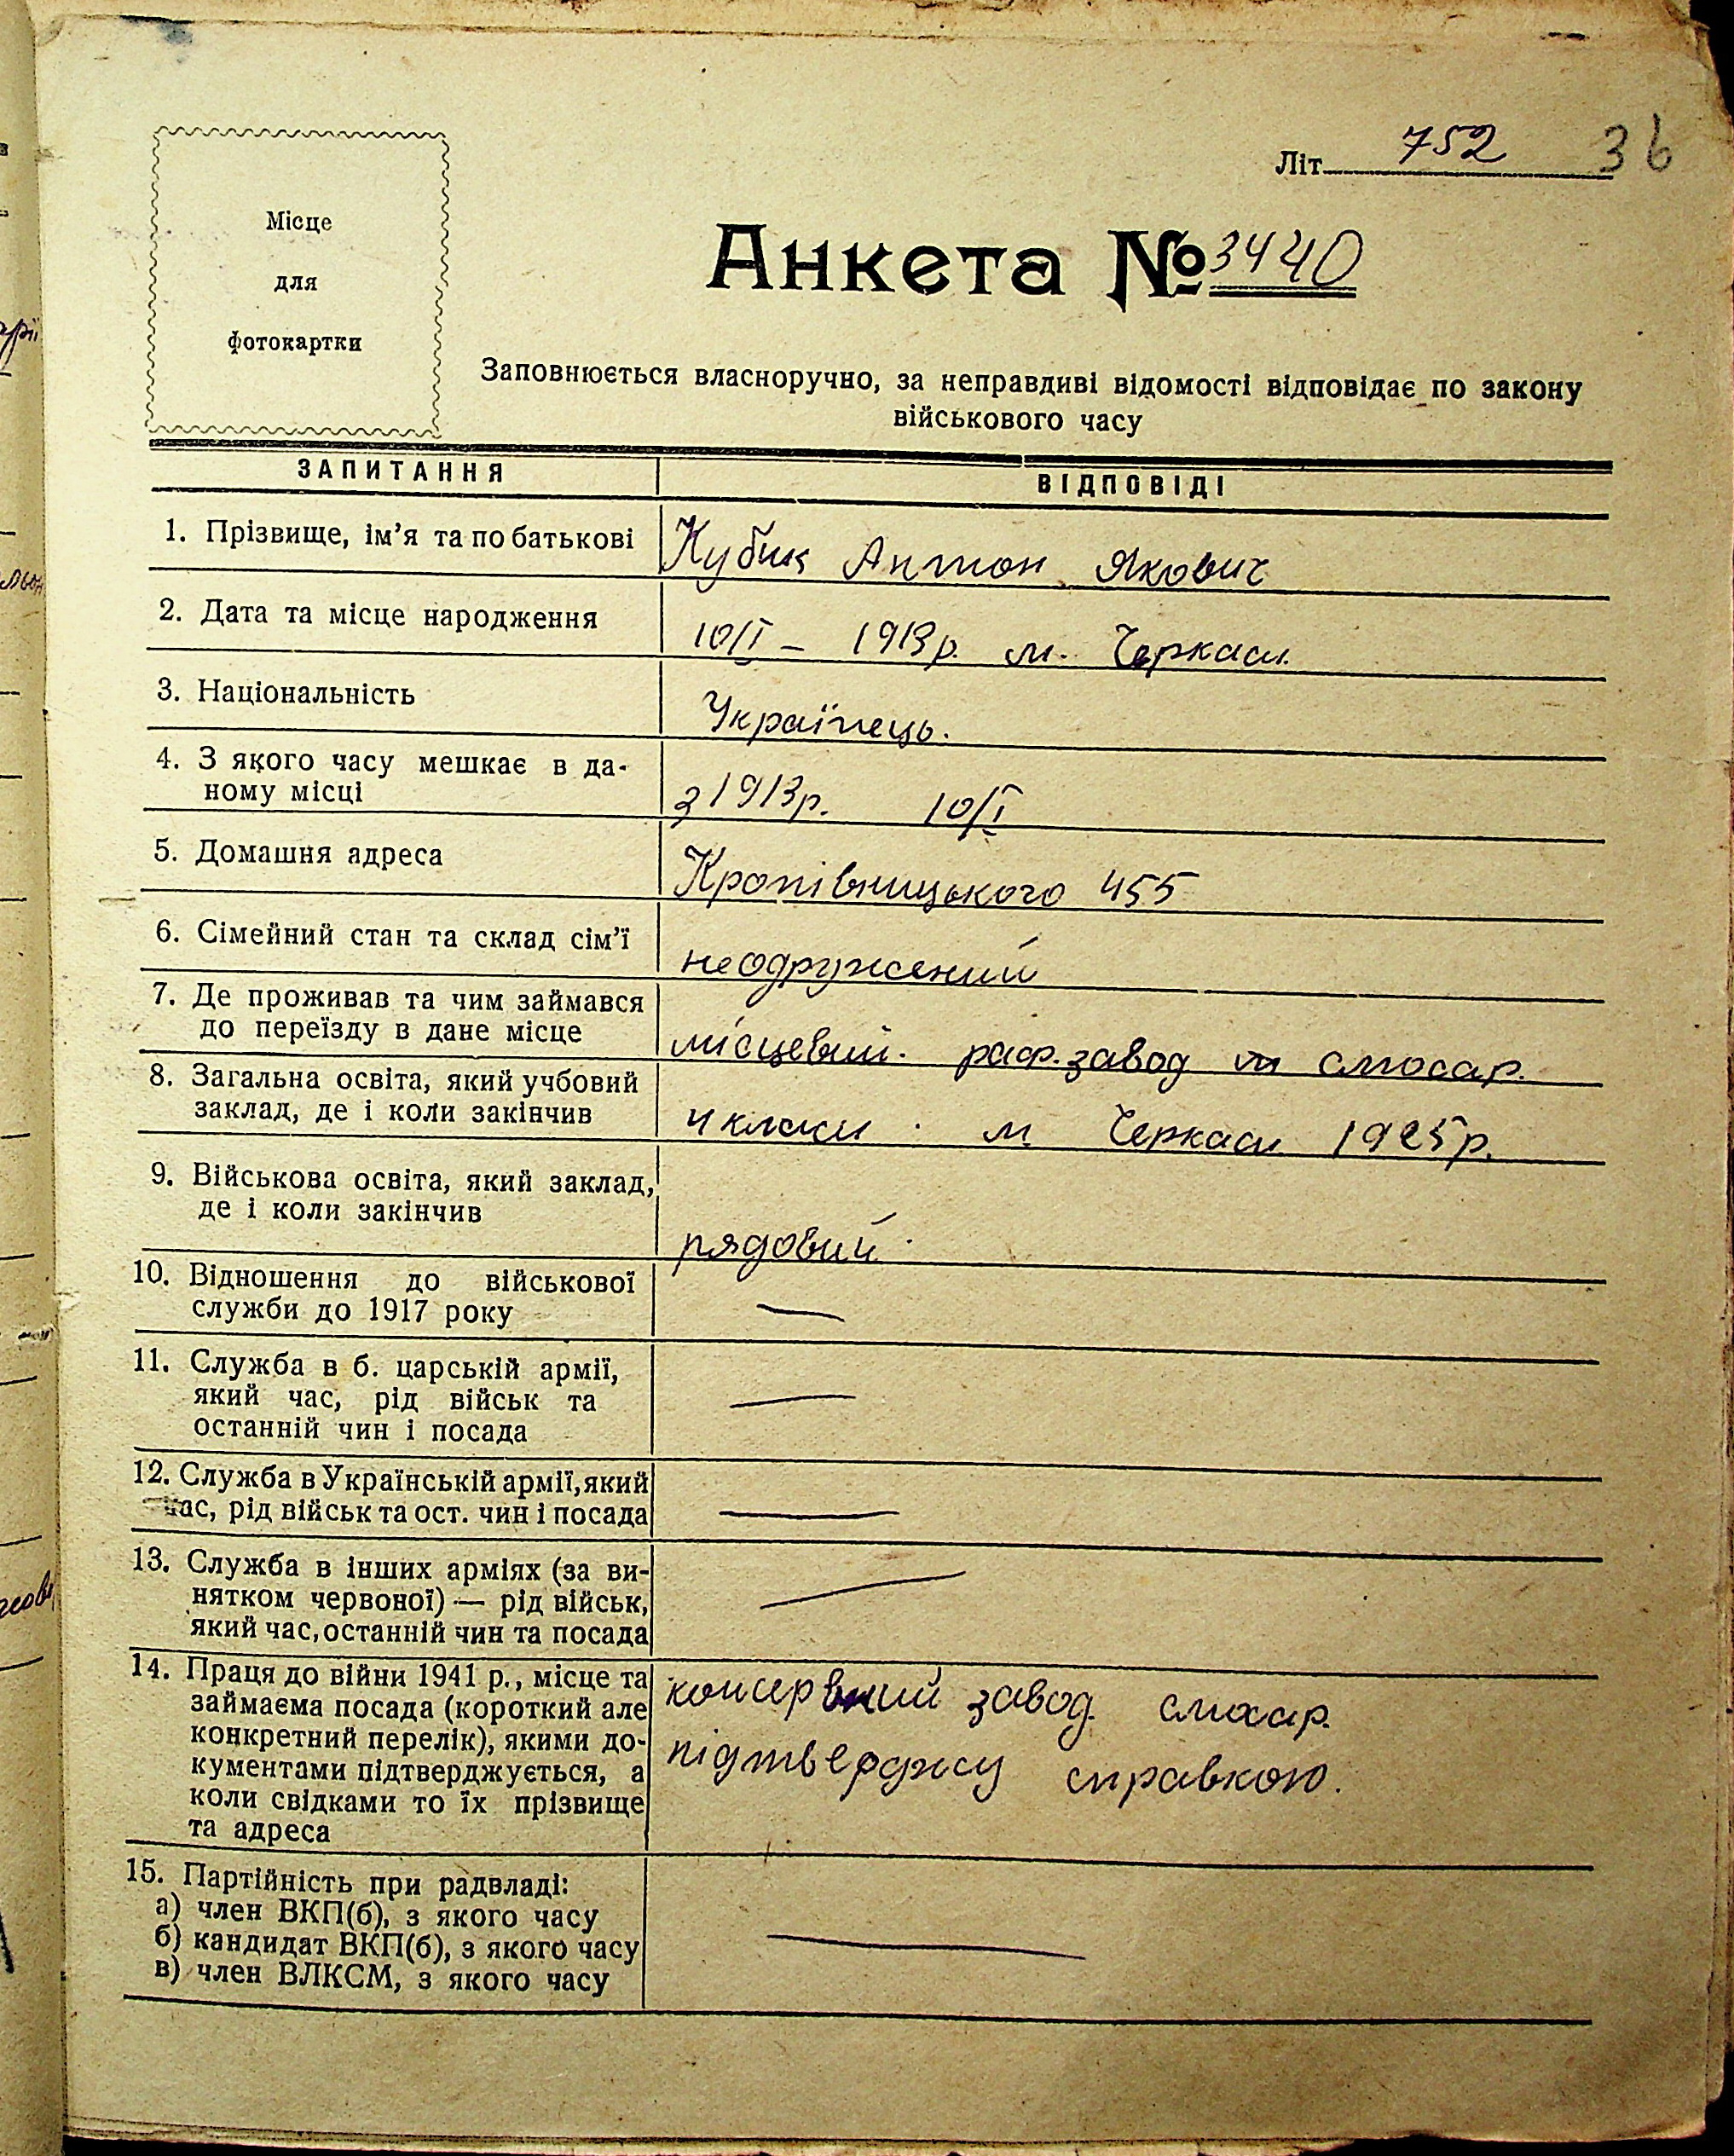 Літ. 752 36
Місце
для
фотокартки
Анкета № 3440
Заповнюється власноручно, за неправдиві відомості відповідає по закону
військового часу
ЗАПИТАННЯ ВІДПОВІДІ
1. Прізвище, ім'я та по батькові Кубик Антон Якович
2. Дата та місце народження 10/I – 1913р. м. Черкаси.
3. Національність Українець.
4. З якого часу мешкає в да-
ному місці з 1913р. 10/I
5. Домашня адреса Кропівницького 455
6. Сімейний стан та склад сім'ї неодружений
7. Де проживав та чим займався
до переїзду в дане місце місцевий. раф.завод слюсар.
8. Загальна освіта, який учбовий
заклад, де і коли закінчив 4 класи. м Черкаси 1925р.
9. Військова освіта, який заклад,
де і коли закінчив рядовий.
10. Відношення до військової
служби до 1917 року —
11. Служба в б. царській армії,
який час, рід військ та
останній чин і посада —
12. Служба в Українській армії, який
час, рід військ та ост. чин і посада —
13. Служба в інших арміях (за ви-
нятком червоної) — рід військ,
який час, останній чин та посада —
14. Праця до війни 1941 р., місце та консервний завод. слюсар.
займаєма посада (короткий але
конкретний перелік), якими до- підтверджу справкою.
кументами підтверджується, а
коли свідками то їх прізвище
та адреса
15. Партійність при радвладі:
а) член ВКП(б), з якого часу
б) кандидат ВКП(б), з якого часу —
в) член ВЛКСМ, з якого часу